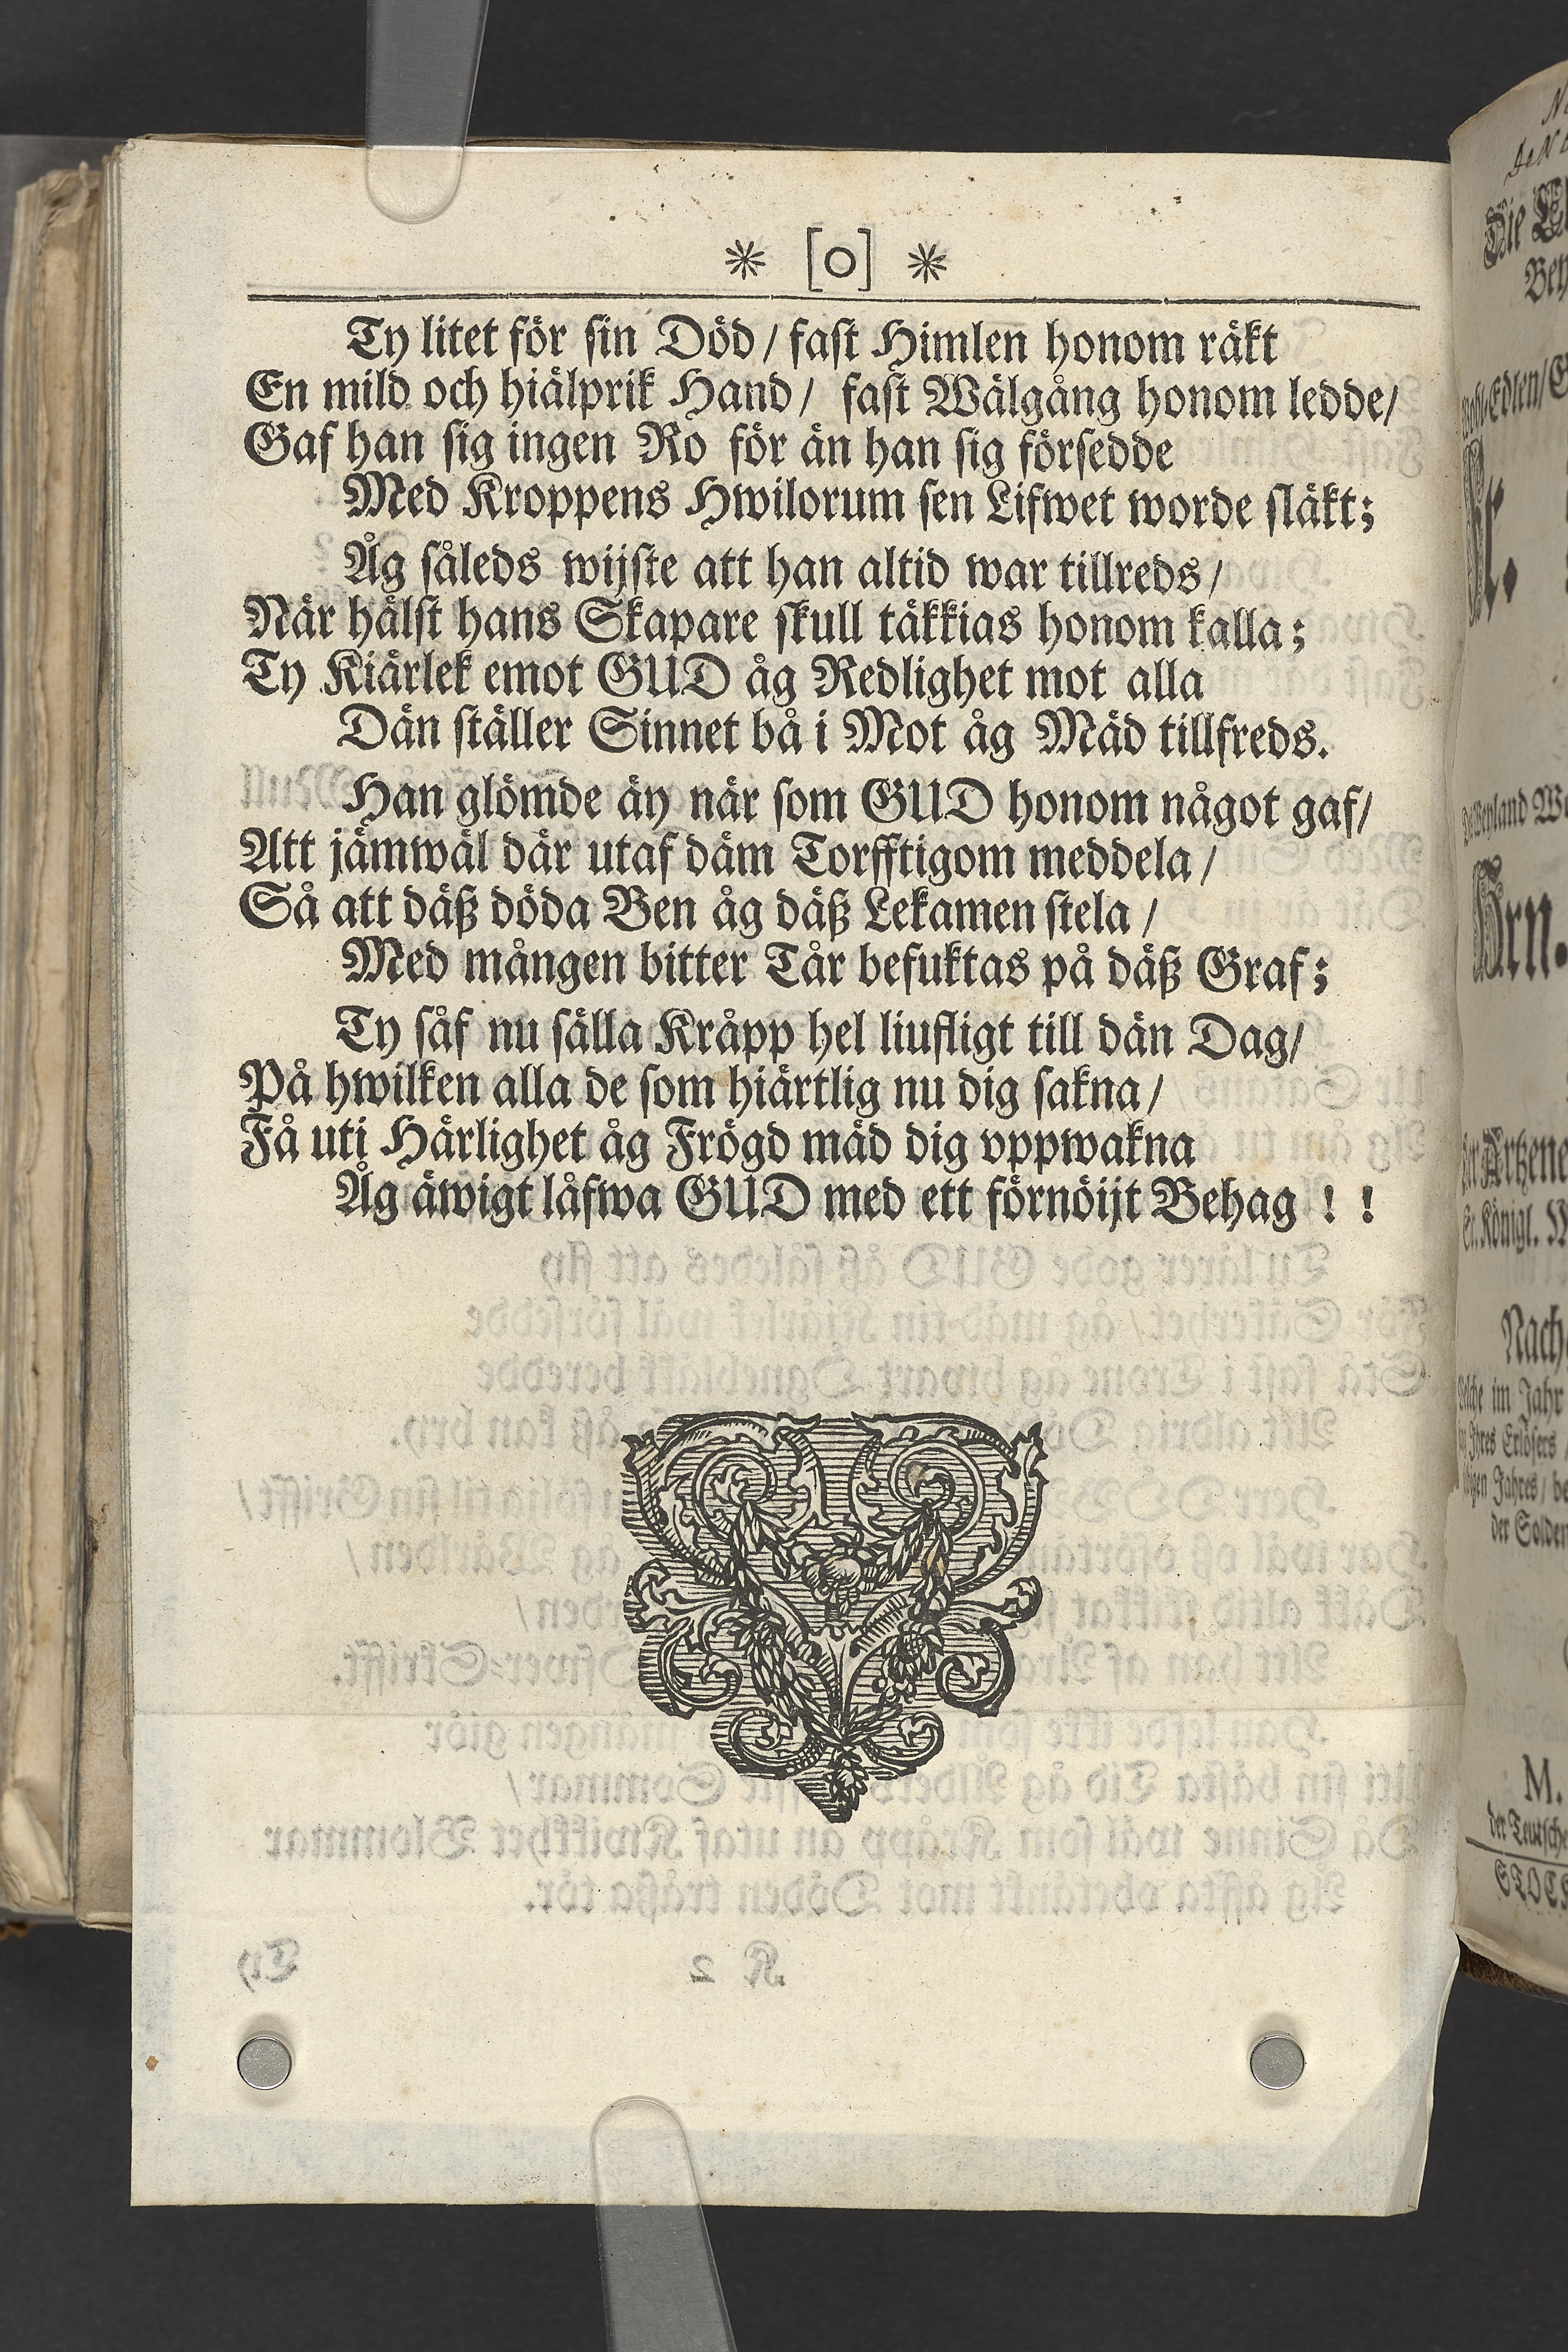 * [o] *
Ty litet för sin Död / fast Himlen honom räkt
En mild och hiälprik Hand / fast Wälgång honom ledde /
Gaf han sig ingen Ro för än han sig försedde
Med Kroppens Hwilorum sen Lifwet worde släkt;
Åg såleds wijste att han altid war tillreds /
När hälst hans Skapare skull täkkias honom kalla;
Ty Kiärlek emot GUD åg Redlighet mot alla
Dän ställer Sinnet bå i Mot åg Mäd tillfreds.
Han glömde äy när som GUD honom något gaf /
Att jämwäl där utaf däm Torfftigom meddela /
Så att däß döda Ben åg däß Lekamen stela /
Med mången bitter Tår befuktas på däß Graf;
Ty såf nu sälla Kråpp hel liufligt till dän Dag /
På hwilken alla de som hiärtlig nu dig sakna /
Få uti Härlighet åg Frögd mäd dig vppwakna
Åg äwigt låfwa GUD med ett förnöijt Behag ! !
Die
Edlen /
Hrn.
Königl.
Nach
im Jahr
Jahres /
der
M.
der Teutsche